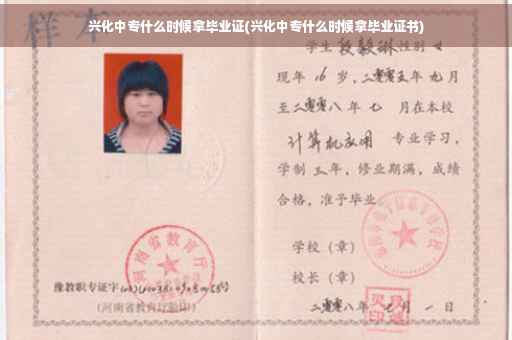 兴化中专什么时候拿毕业证(兴化中专什么时候拿毕业证书)
样本
学生 段毅琳 性别 女
现年 16 岁，二零零五年 九月
至二零零八年 七 月在本校
计算机应用 专业学习，
学制 三年，修业期满，成绩
合格，准予毕业
学校（章）
校长（章）
二零零八年 七月 一 日
河南省教育厅
豫教职专证字
(河南省教育厅验印)